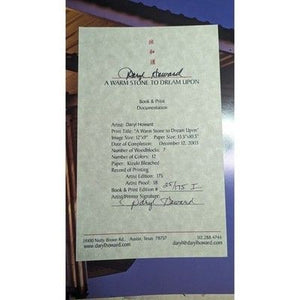 Daryl Howard
A WARM STONE TO DREAM UPON
Book & Print
Documentation
Artist: Daryl Howard
Print Title: "A Warm Stone to Dream Upon"
Image Size: 12"x9" Paper Size: 13.5"x10.5"
Date of Completion: December 12, 2003
Number of Woodblocks: 7
Number of Colors: 12
Paper: Kizuki Bleached
Record of Printing
Artist Edition: 175
Artist Proof: 18
Book & Print Edition # 25/175 I
Artist/Printer Signature:
Daryl Howard
Austin, Texas 78757
512.288.4746
www.darylhoward.com
daryl@darylhoward.com